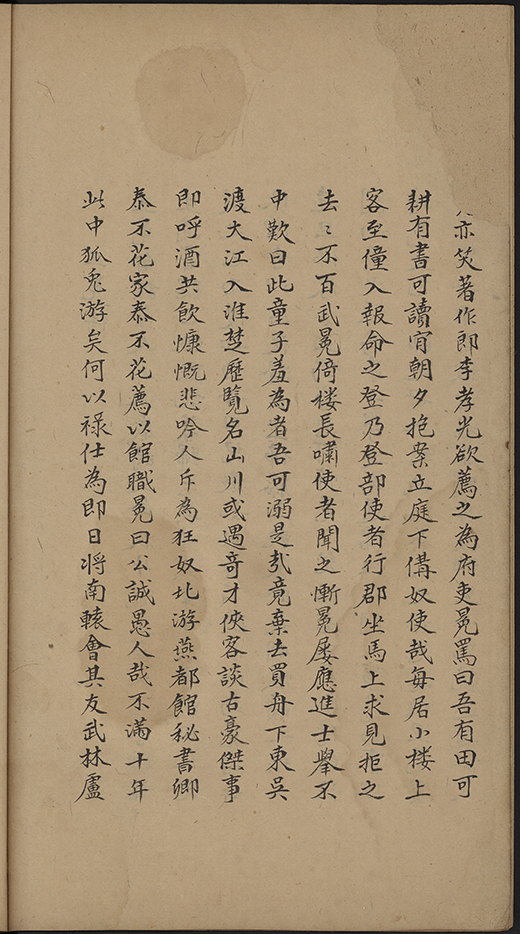 亦笑著作郎李孝光欲薦之為府吏冕罵曰吾有田可
耕有書可讀肎朝夕抱案立庭下備奴使哉每居小楼上
客至僮入報命之登乃登部使者行郡坐馬上求見拒之
去〻不百武冕倚楼長嘯使者聞之慚冕屡應進士舉不
中歎曰此童子羞為者吾可溺是㢤竟棄去買舟下東吳
渡大江入淮楚歷覽名山川或遇竒才俠客談古豪傑事
即呼酒共飲慷慨悲吟人斥為狂奴北游燕都館秘書卿
泰不花家泰不花薦以館職冕曰公誠愚人哉不滿十年
此中狐兎游矣何以祿仕為即日将南轅會其友武林盧